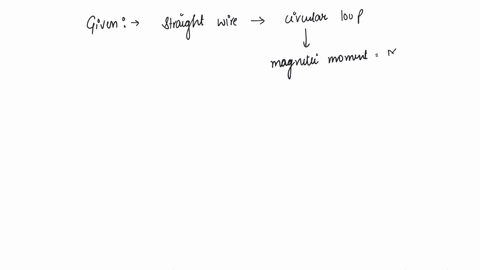 Given :→ straight wire → circular loop
↓
magnetic moment =